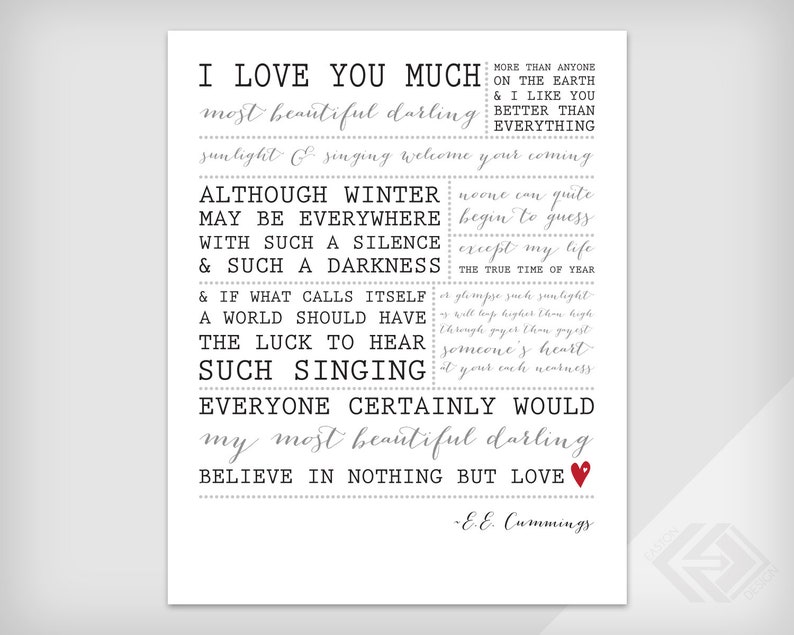 I LOVE YOU MUCH
most beautiful darling
MORE THAN ANYONE
ON THE EARTH
& I LIKE YOU
BETTER THAN
EVERYTHING
sunlight & singing welcome your coming
ALTHOUGH WINTER
MAY BE EVERYWHERE
WITH SUCH A SILENCE
& SUCH A DARKNESS
noone can quite
begin to guess
except my life
THE TRUE TIME OF YEAR
& IF WHAT CALLS ITSELF
A WORLD SHOULD HAVE
THE LUCK TO HEAR
SUCH SINGING
or glimpse such sunlight
as will leap higher than high
through gayer than gayest
someone's heart
at your each nearness
EVERYONE CERTAINLY WOULD
my most beautiful darling
BELIEVE IN NOTHING BUT LOVE
~E.E. Cummings
EASTON
DESIGN